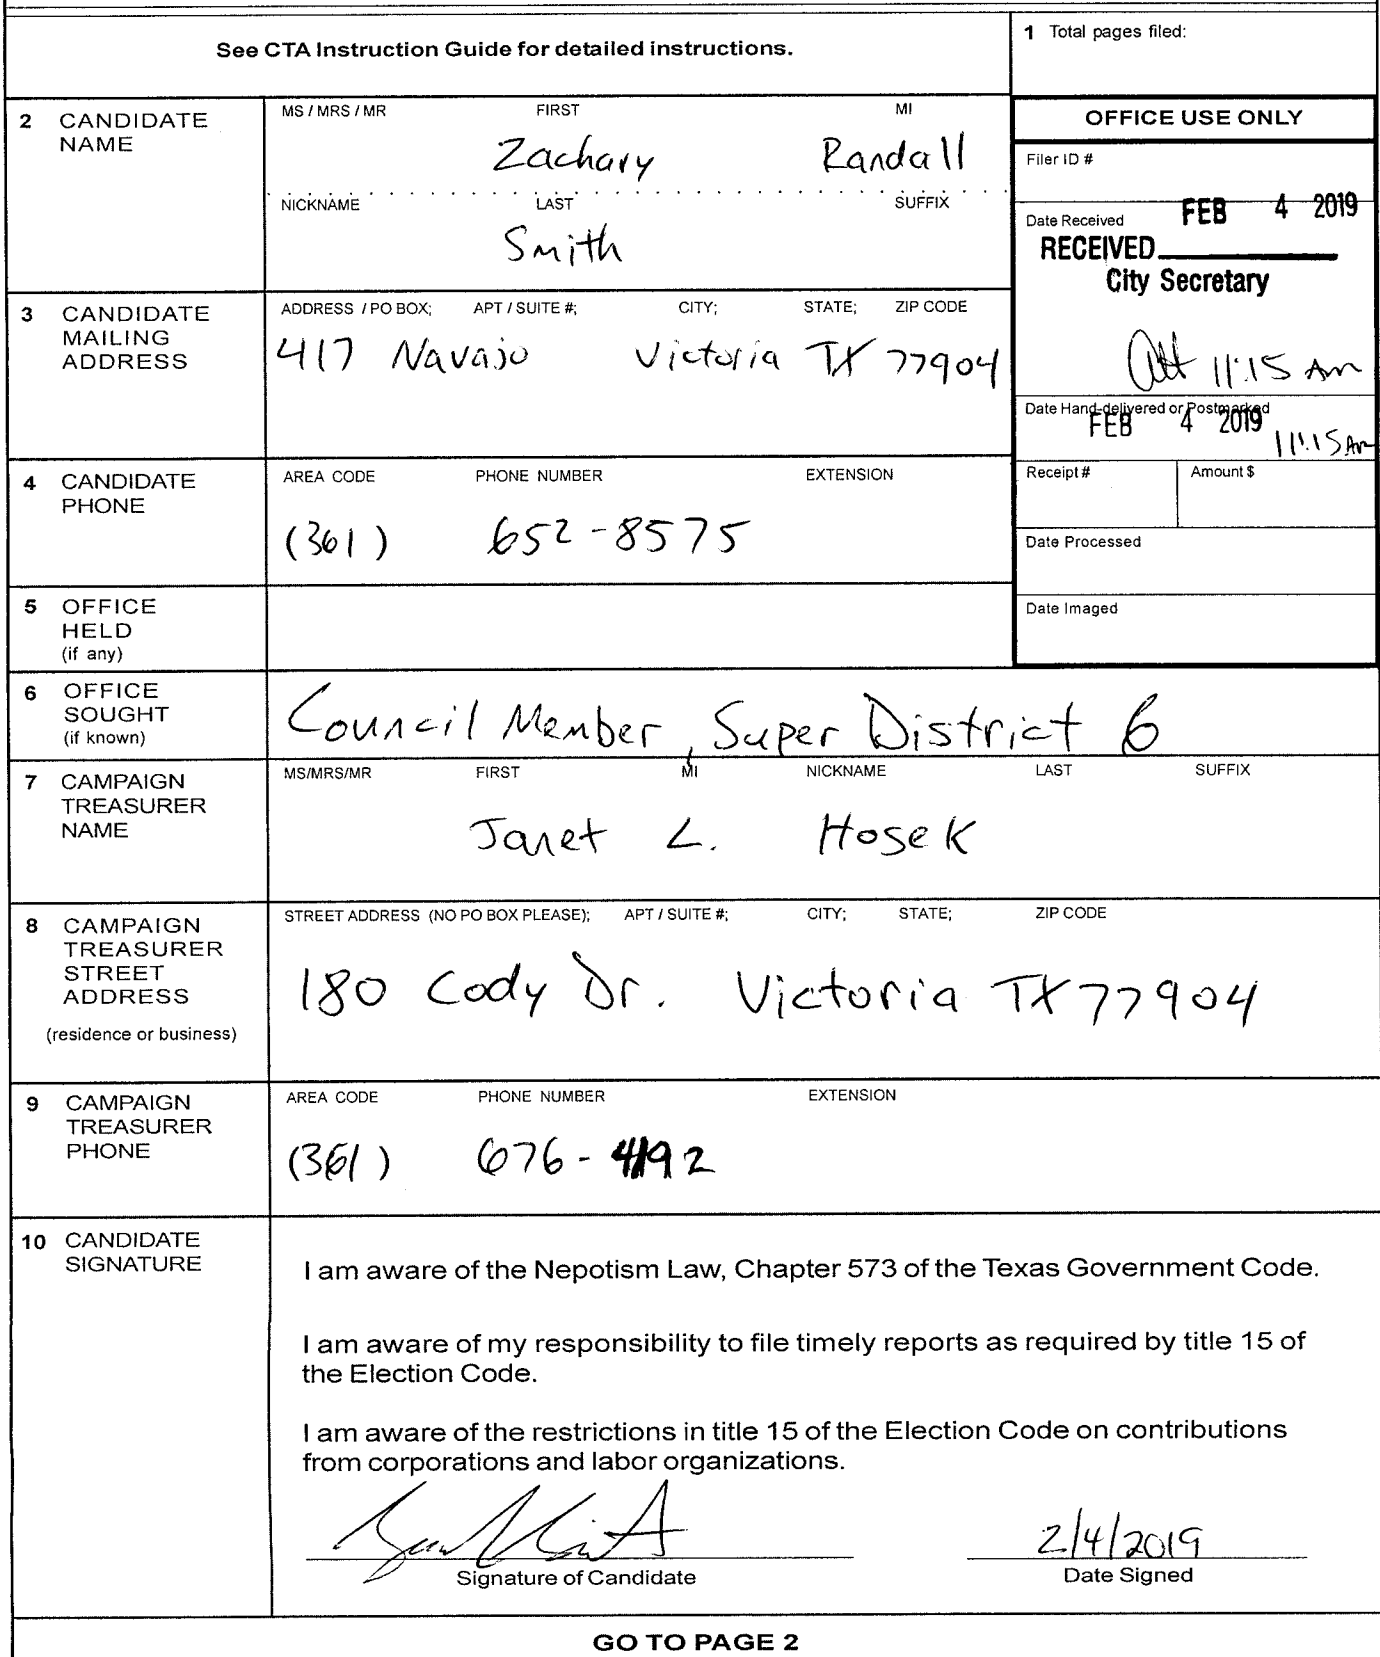 See CTA Instruction Guide for detailed instructions.
1 Total pages filed:
2 CANDIDATE NAME
MS / MRS / MR FIRST MI
Zachary Randall
NICKNAME LAST SUFFIX
Smith
OFFICE USE ONLY
Filer ID #
Date Received FEB 4 2019
RECEIVED
City Secretary
11:15 Am
Date Hand-delivered or Postmarked
FEB 4 2019 11:15 Am
Receipt # Amount $
Date Processed
Date Imaged
3 CANDIDATE MAILING ADDRESS
ADDRESS / PO BOX; APT / SUITE #; CITY; STATE; ZIP CODE
417 Navajo Victoria TX 77904
4 CANDIDATE PHONE
AREA CODE PHONE NUMBER EXTENSION
(361) 652-8575
5 OFFICE HELD
(if any)
6 OFFICE SOUGHT
(if known)
Council Member, Super District 6
7 CAMPAIGN TREASURER NAME
MS/MRS/MR FIRST MI NICKNAME LAST SUFFIX
Janet L. Hosek
8 CAMPAIGN TREASURER STREET ADDRESS
(residence or business)
STREET ADDRESS (NO PO BOX PLEASE); APT / SUITE #; CITY; STATE; ZIP CODE
180 Cody Dr. Victoria TX 77904
9 CAMPAIGN TREASURER PHONE
AREA CODE PHONE NUMBER EXTENSION
(361) 676-4192
10 CANDIDATE SIGNATURE
I am aware of the Nepotism Law, Chapter 573 of the Texas Government Code.
I am aware of my responsibility to file timely reports as required by title 15 of
the Election Code.
I am aware of the restrictions in title 15 of the Election Code on contributions
from corporations and labor organizations.
2/4/2019
Signature of Candidate Date Signed
GO TO PAGE 2